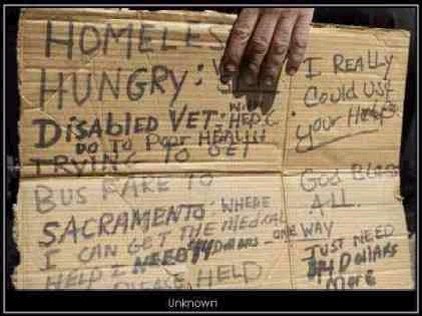 HOMELES
HUNGRY:
DISABLED VET: WITH HEP C
DO TO POOR HEALTH
TRYING TO GET
BUS FARE TO
SACRAMENTO: WHERE
I CAN GET THE MEDICAL
HELP I NEED 44 DOLLARS - ONE WAY
HELP
I REALLY
COULD USE
your Help
GOD BLESS
ALL.
JUST NEED
14 DOLLARS
MORE
Unknown